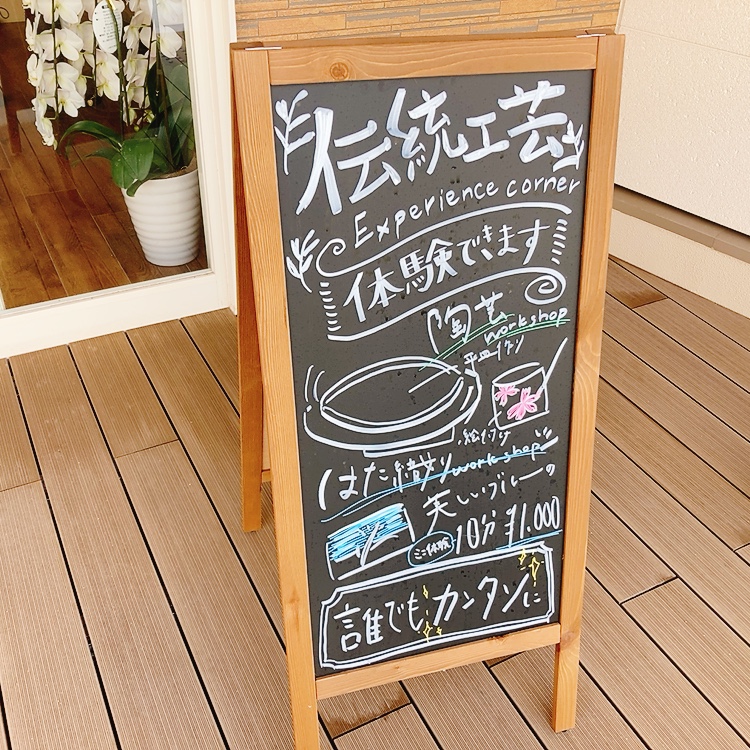 伝統工芸
Experience corner
体験できます
陶芸
workshop
平皿作り
絵付け
はた織り workshop
美しいブルーの
ミニ体験 10分 ¥1.000
誰でもカンタンに